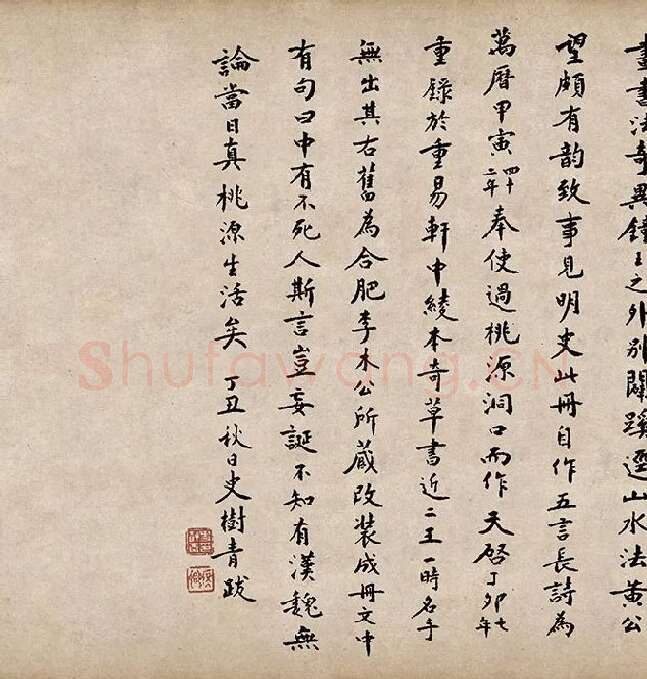 畫書法奇異鍾王之外別闢蹊逕山水法黃公
望頗有韵致事見明史此冊自作五言長詩為
萬曆甲寅四十二年奉使過桃原洞口而作天啟丁卯七年
重錄於重易軒中綾本奇草書近二王一時名手
無出其右舊為合肥李木公所藏改裝成冊文中
有句曰中有不死人斯言豈妄誕不知有漢魏無
論當日真桃源生活矣 丁丑秋日史樹青跋
Shufawang.CN